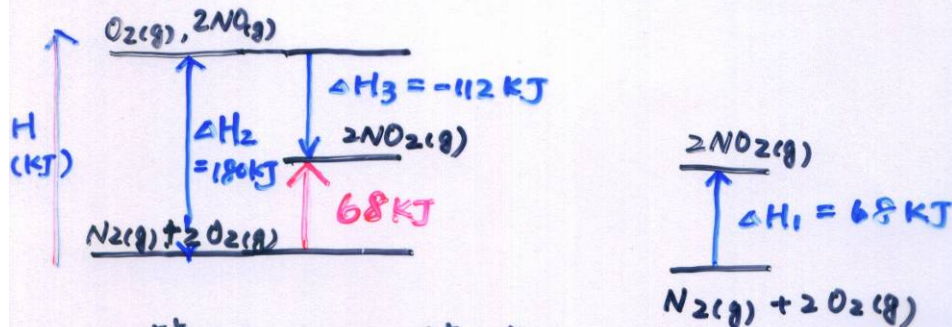 O2(g), 2NO(g)
ΔH3 = -112 KJ
H
(KJ)
ΔH2
= 180KJ
2NO2(g)
68KJ
N2(g) + 2O2(g)
2NO2(g)
ΔH1 = 68 KJ
N2(g) + 2O2(g)